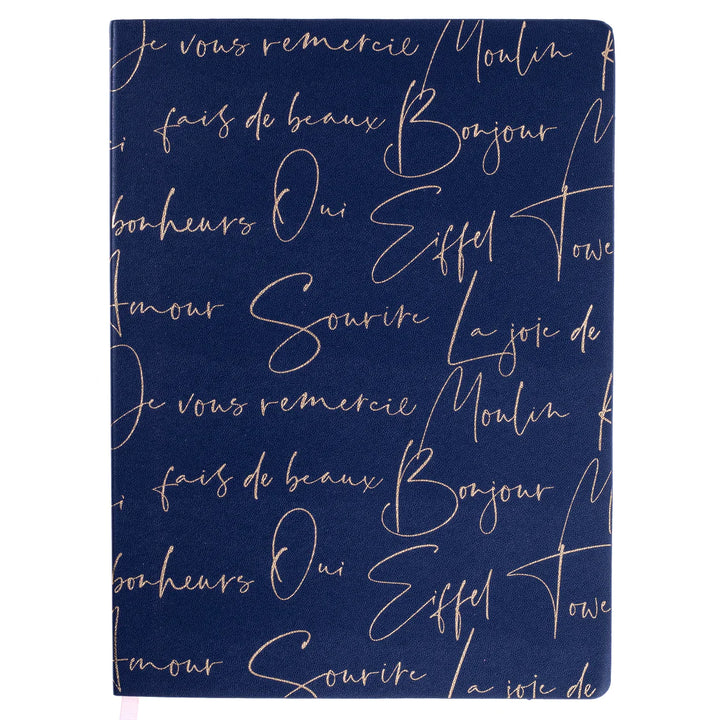 Je vous remercie Moulin R
ci fais de beaux Bonjour M
bonheurs Oui Eiffel Towe
Amour Sourire La joie de
Je vous remercie Moulin R
ci fais de beaux Bonjour M
bonheurs Oui Eiffel Towe
Amour Sourire La joie de